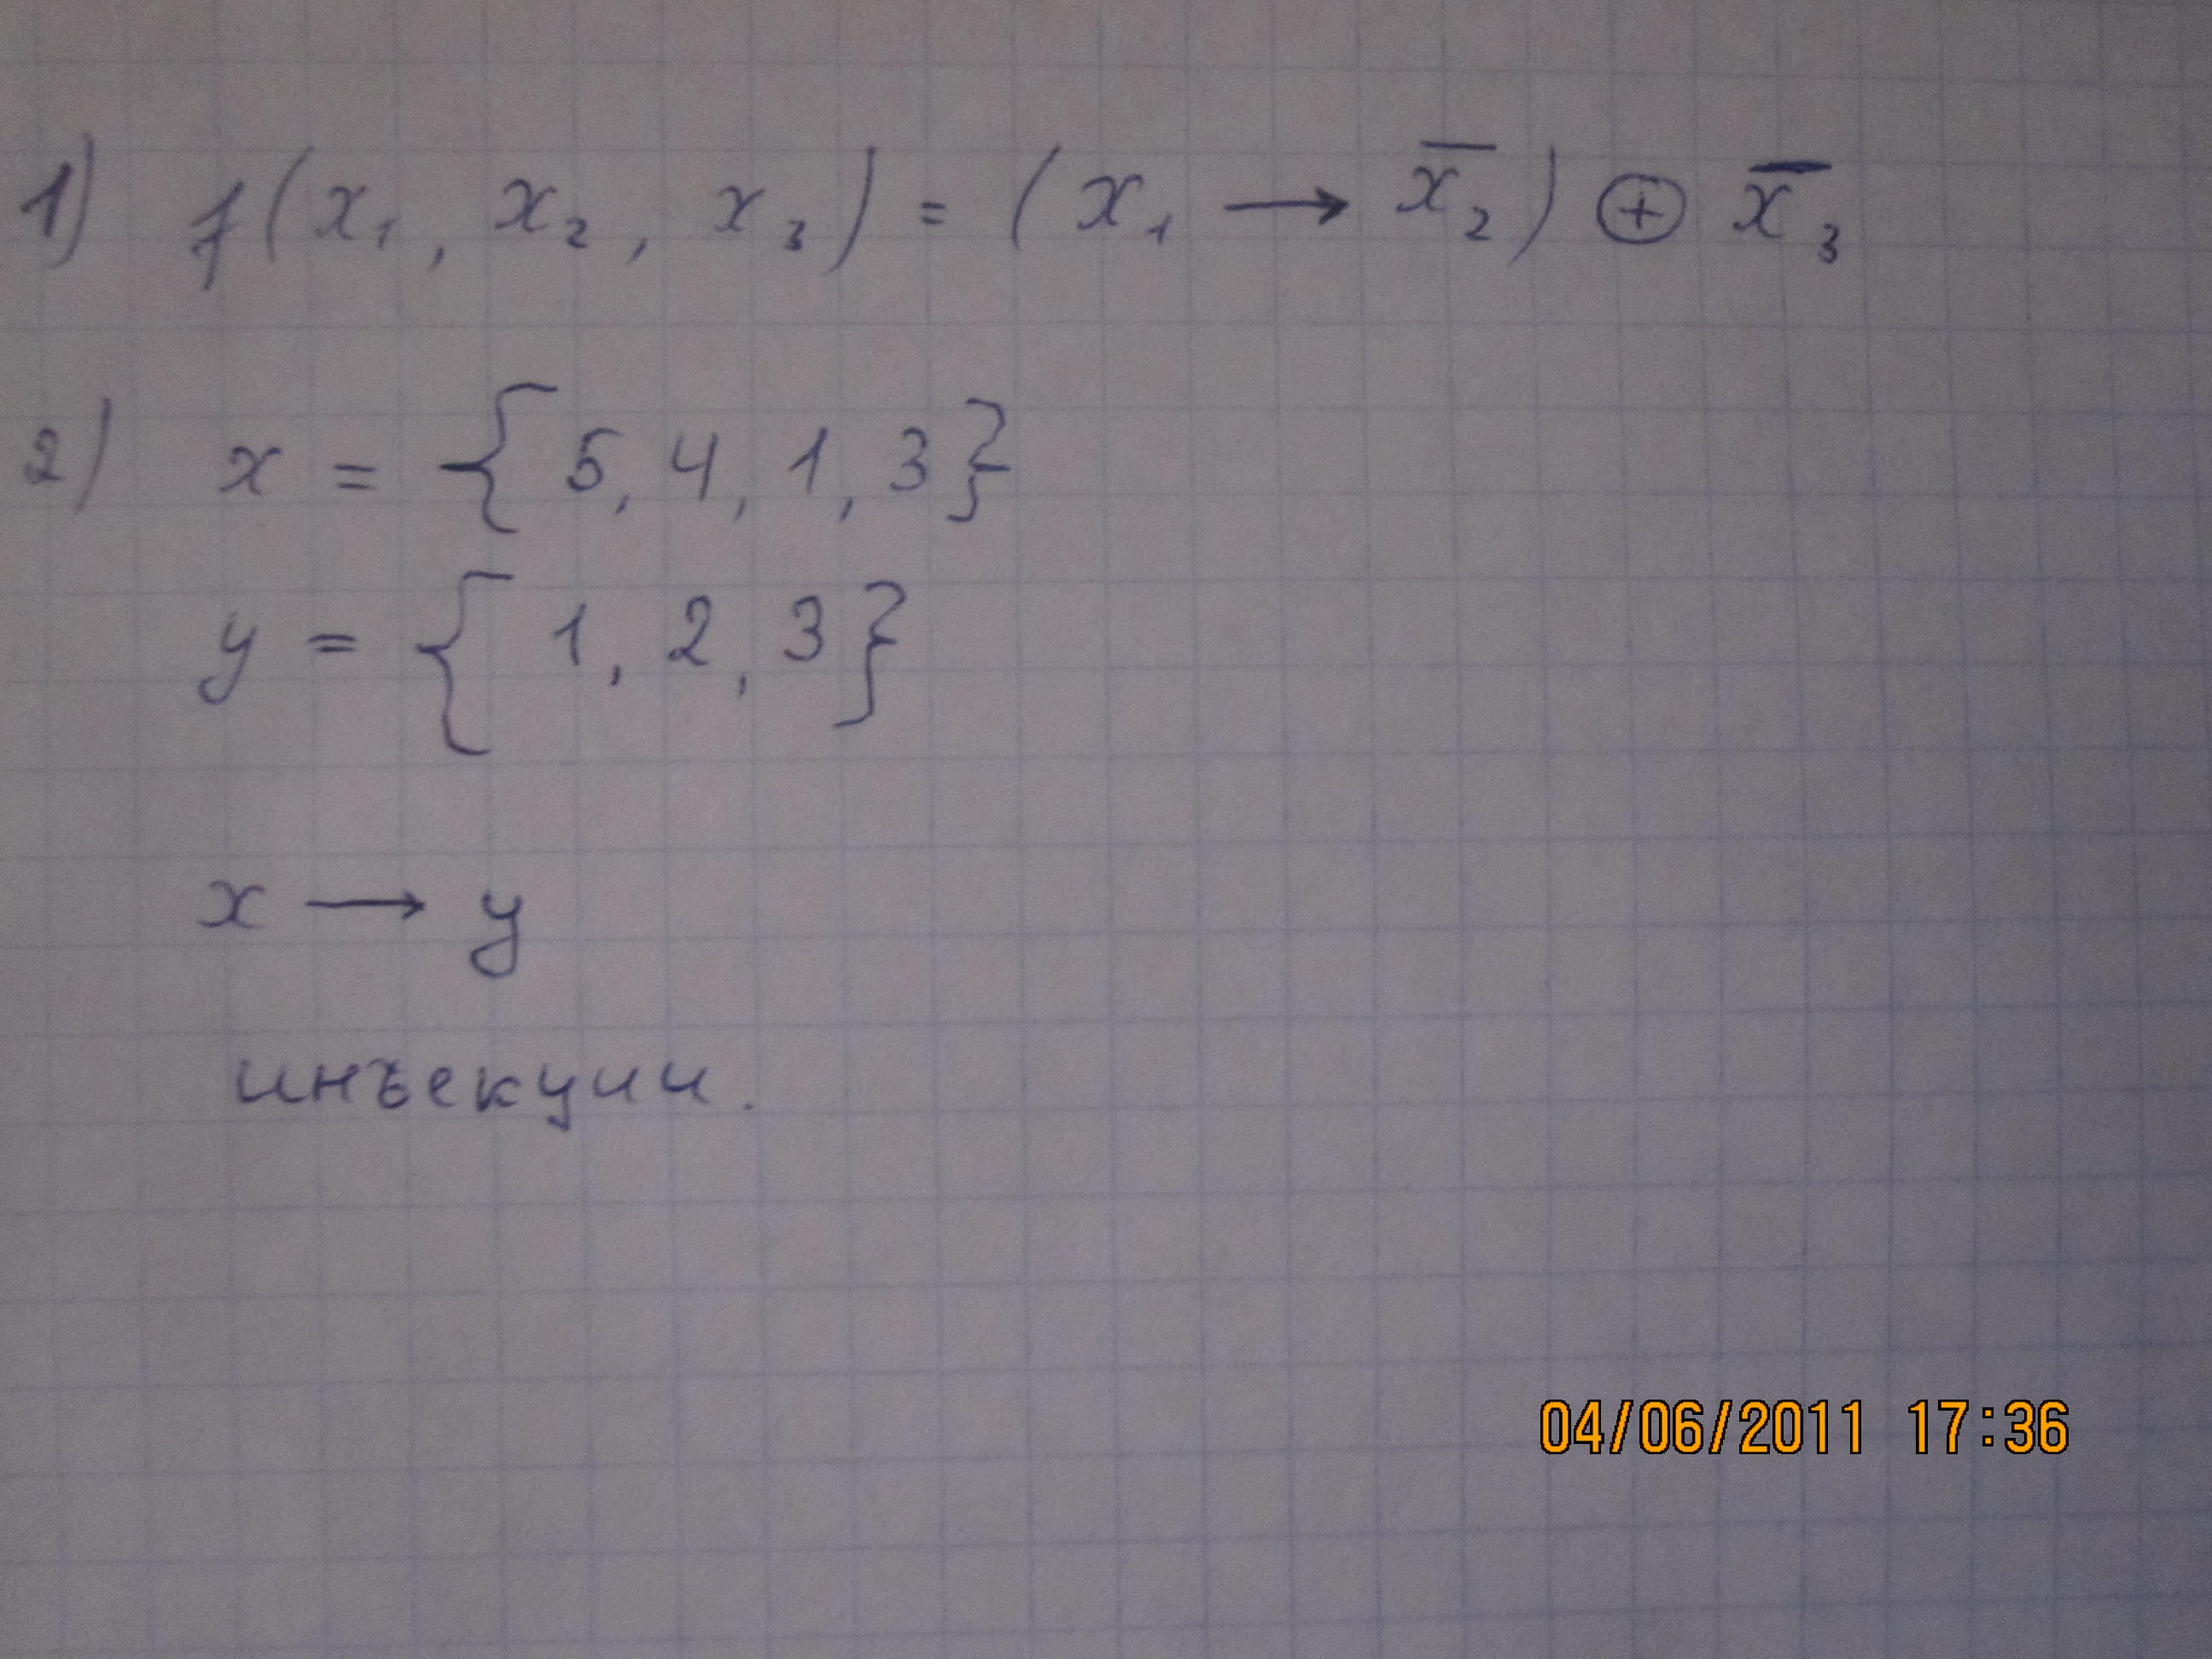 1) f(x₁, x₂, x₃) = (x₁ → x̅₂) ⊕ x̅₃
2) x = {5, 4, 1, 3}
y = {1, 2, 3}
x → y
инъекции.
04/06/2011 17:36